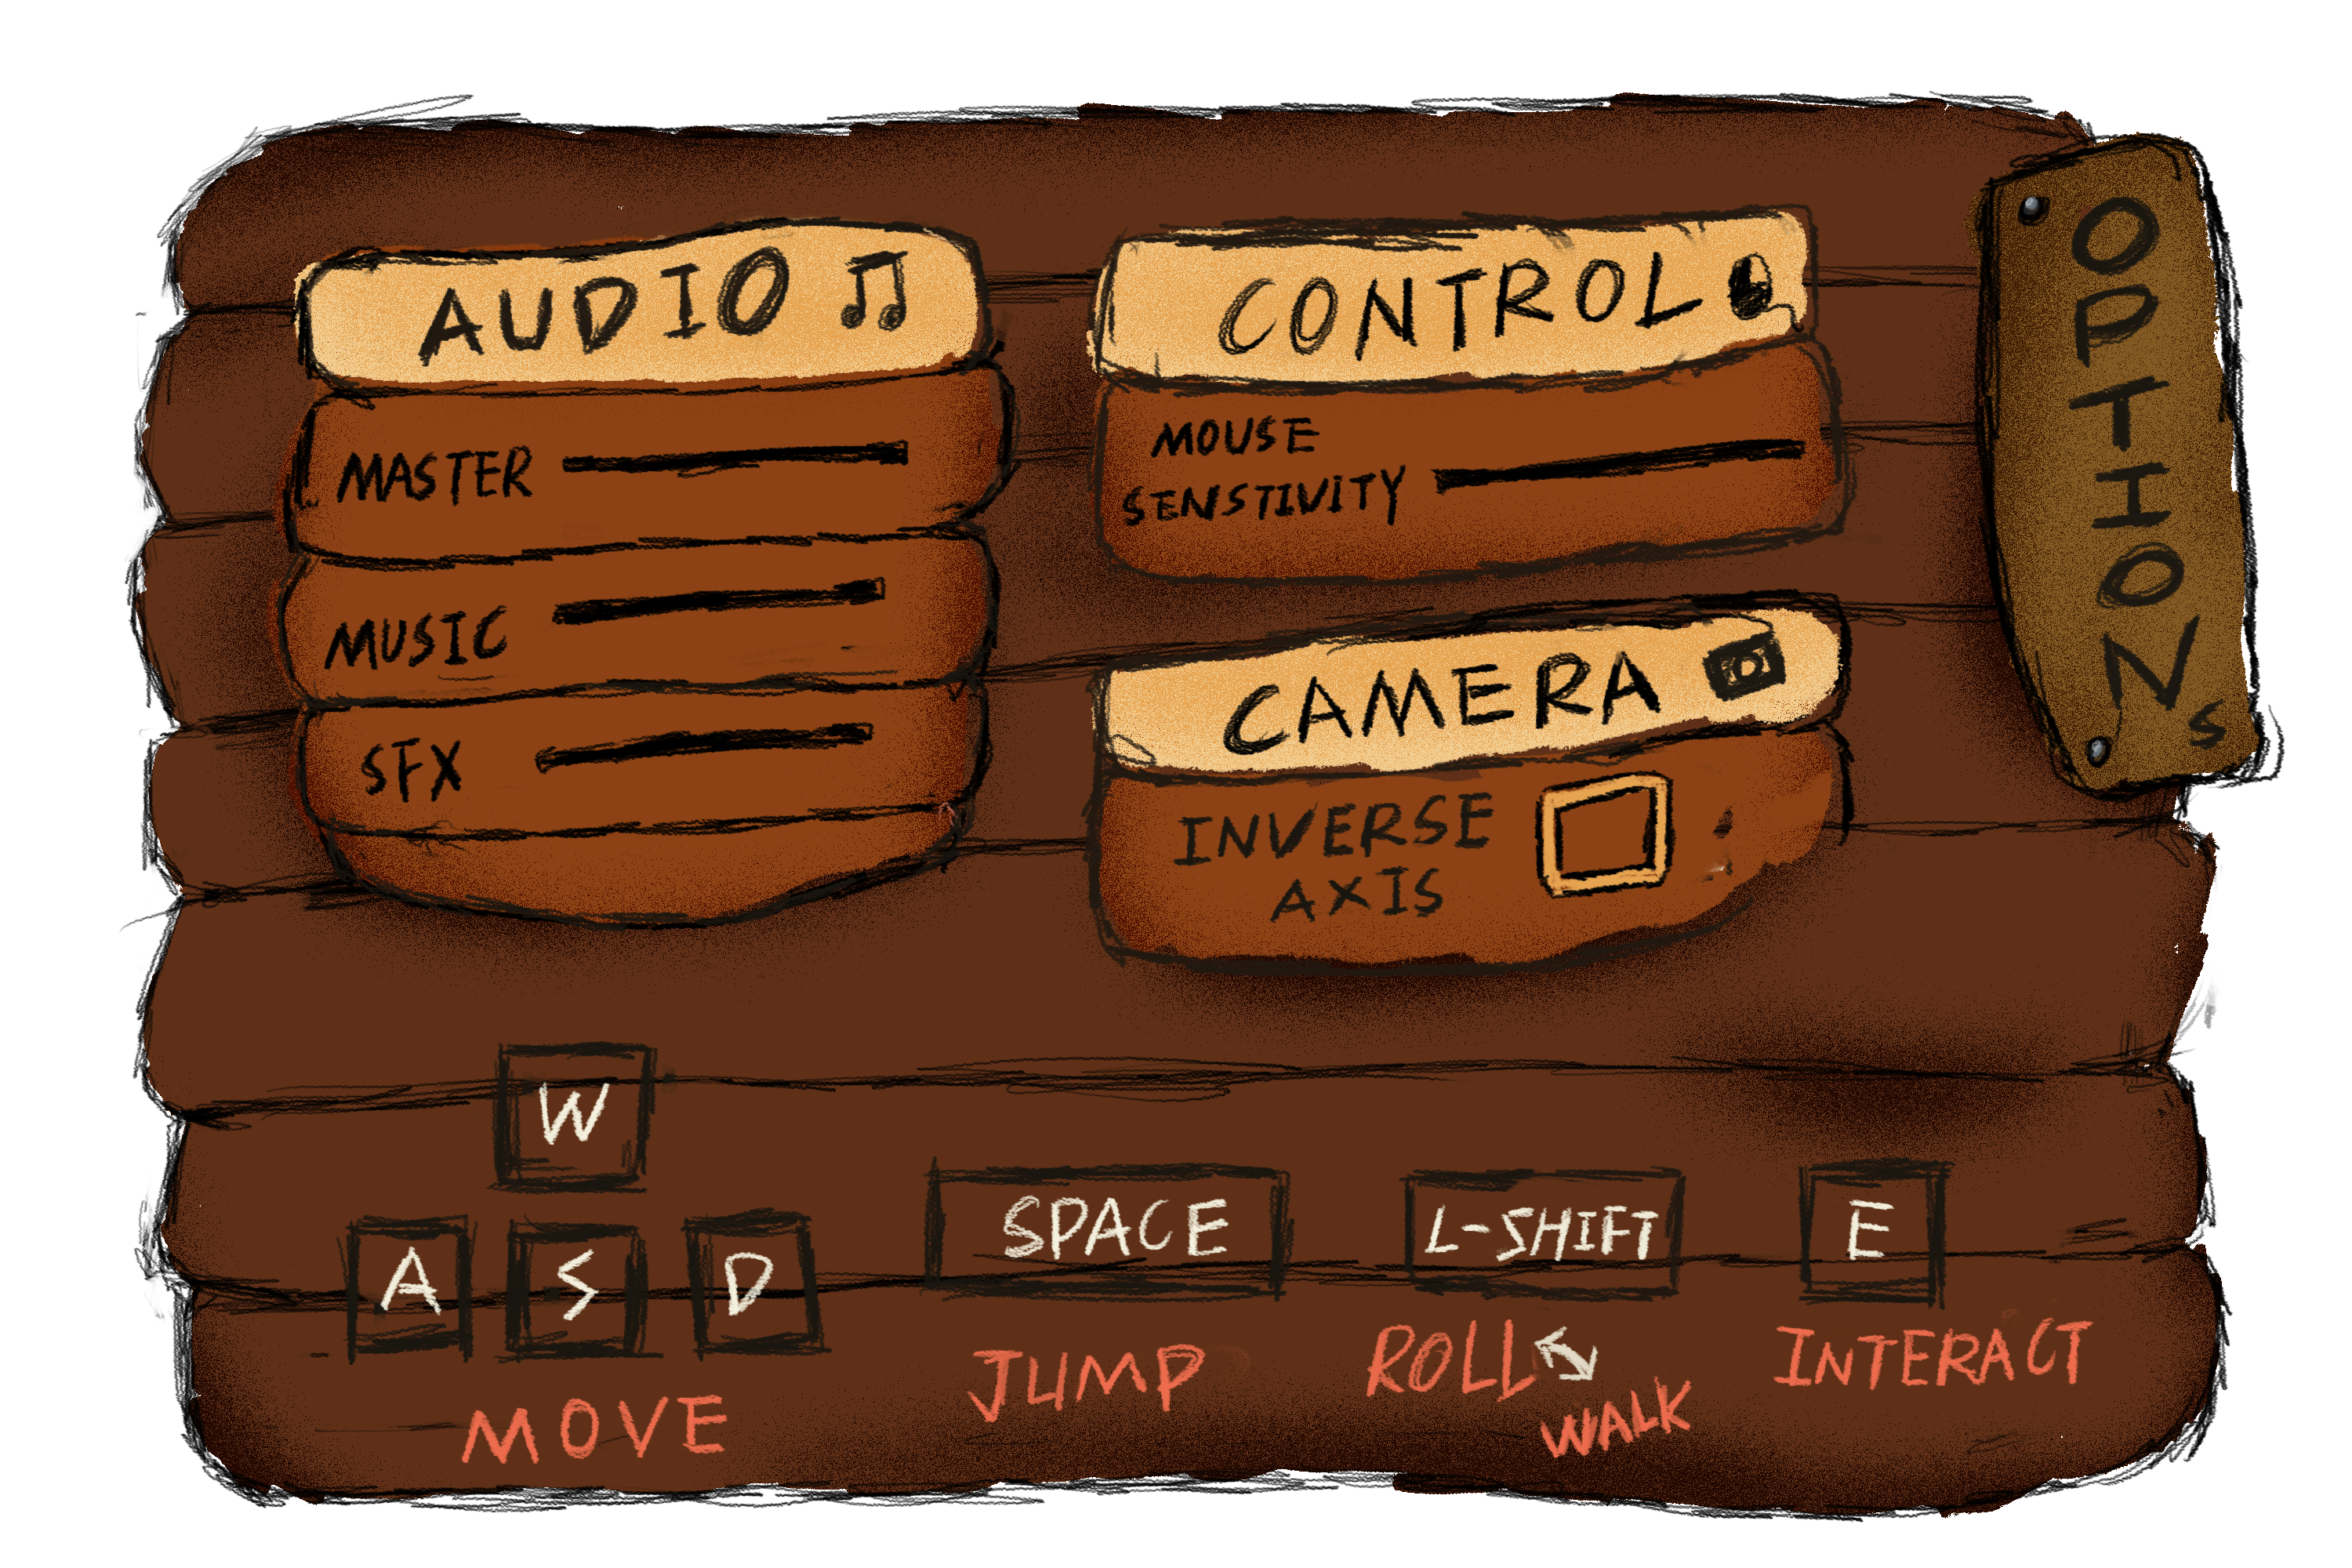 AUDIO
MASTER
MUSIC
SFX
CONTROL
MOUSE
SENSTIVITY
CAMERA
INVERSE
AXIS
OPTIONS
W
A S D
MOVE
SPACE
JUMP
L-SHIFT
ROLL
WALK
E
INTERACT